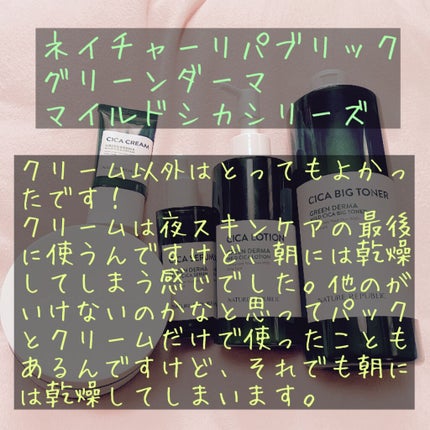 ネイチャーリパブリック
グリーンダーマ
マイルドシカシリーズ
クリーム以外はとってもよかっ
たです！
クリームは夜スキンケアの最後
に使うんですけど、朝には乾燥
してしまう感じでした。他のが
いけないのかなと思ってパック
とクリームだけで使ったことも
あるんですけど、それでも朝に
は乾燥してしまいます。
CICA CREAM
GREEN DERMA
CICA SERUM
GREEN DERMA
CICA LOTION
GREEN DERMA
NATURE REPUBLIC
CICA BIG TONER
GREEN DERMA
CICA BIG TONER
NATURE REPUBLIC